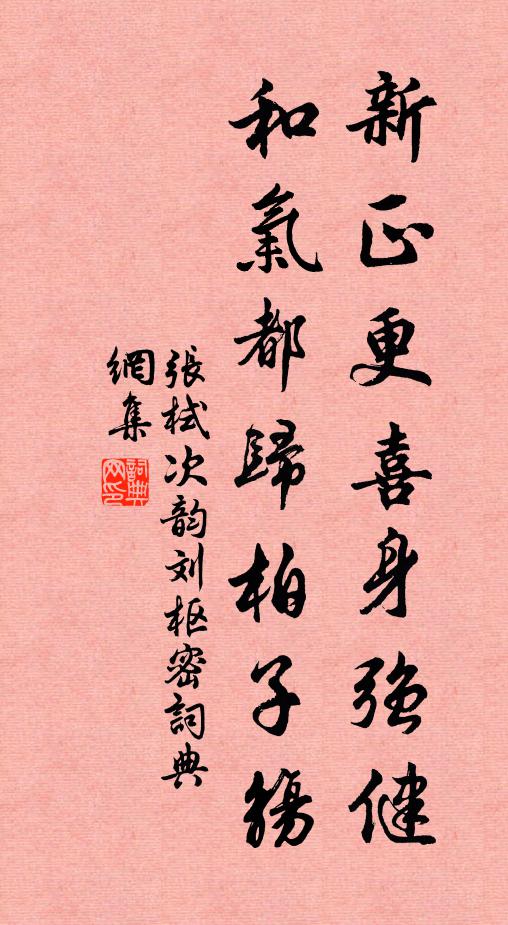 新正更喜身強健
和氣都歸柏子觴
張栻次韵刘枢密詞典
網集
詞典网印